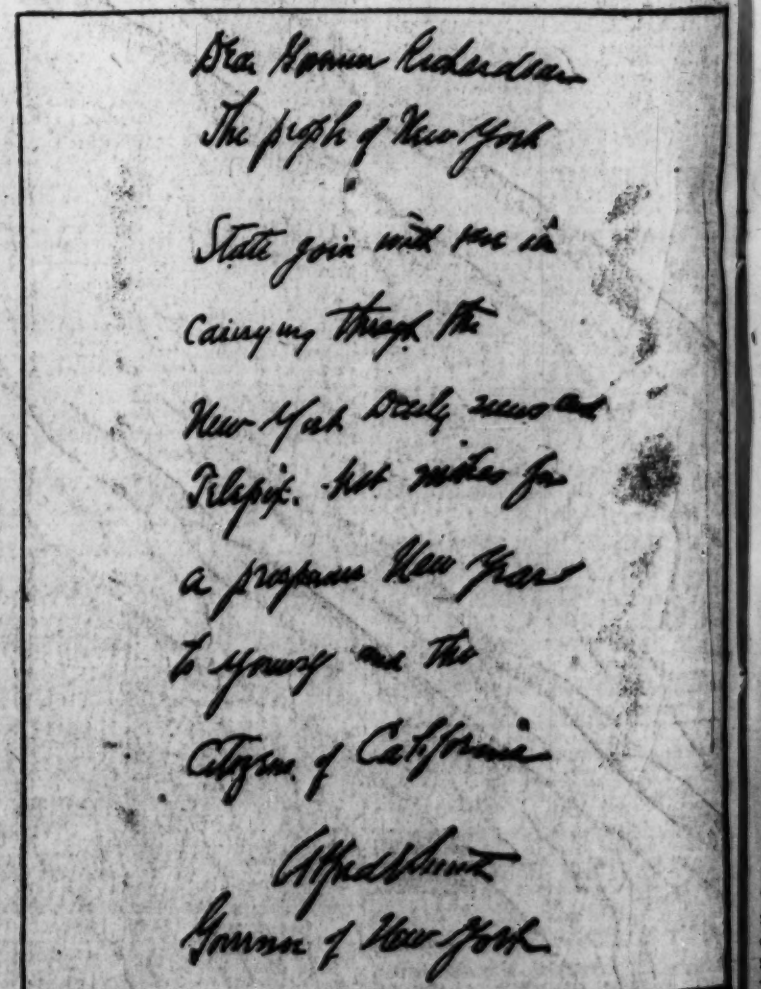 Dear Governor Richardson
The people of New York
State join with me in
carrying through the
New York Daily News and
Telepix. best wishes for
a prosperous New Year
to yourself and the
Citizens of California
Alfred E Smith
Governor of New York